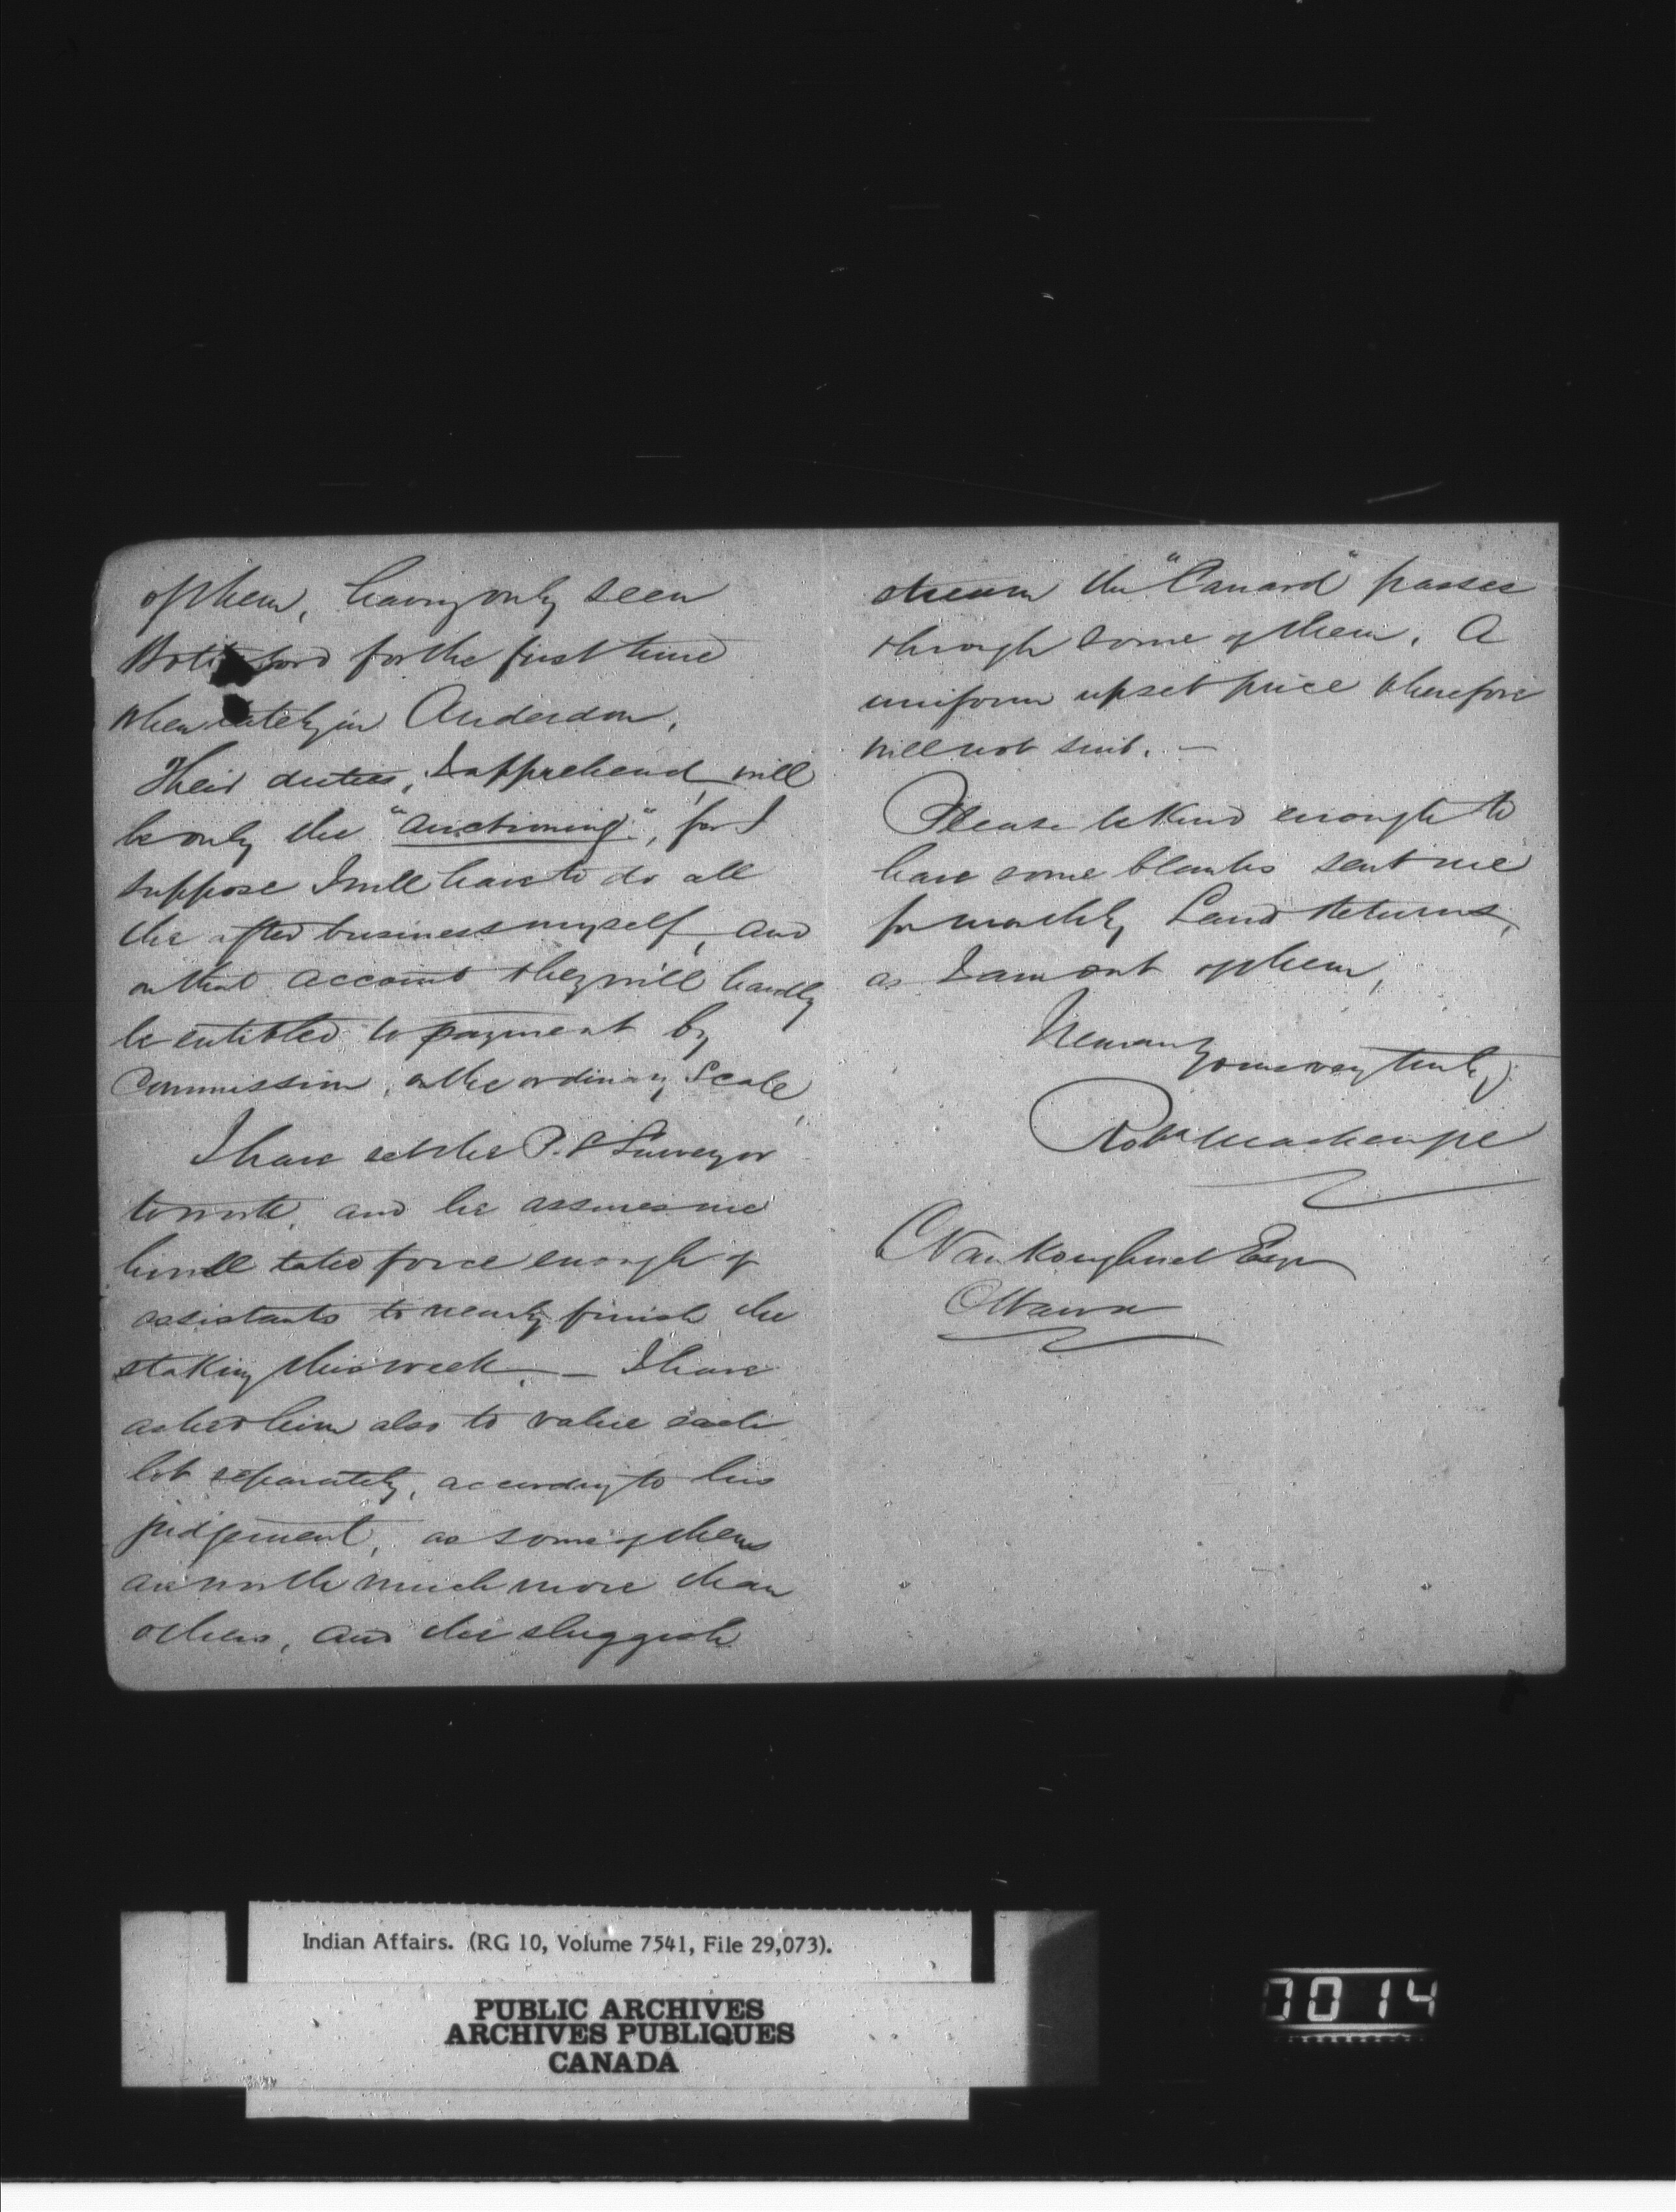 of them, having only seen
Botsford for the first time
when lately in Anderdon.
Their duties, I apprehend, will
be only the "auctioning", for I
suppose I will have to do all
the after business myself, and
on that account they will hardly
be entitled to payment by
Commission, on the ordinary scale.
I have set the P. L Surveyor
to work, and he assures me
he will take force enough of
assistants to nearly finish the
staking this week. — I have
asked him also to value each
lot separately, according to his
judgement, as some of them
are worth much more than
others, and the sluggish
stream the "Canard" passes
through some of them. A
uniform upset price therefore
will not suit. —
Please be kind enough to
have some blanks sent me
for monthly Land Returns,
as I am out of them,
Yours very truly
Robt Mackenzie
VanKoughnet Esqr
Ottawa
Indian Affairs. (RG 10, Volume 7541, File 29,073).
PUBLIC ARCHIVES
ARCHIVES PUBLIQUES
CANADA
0014